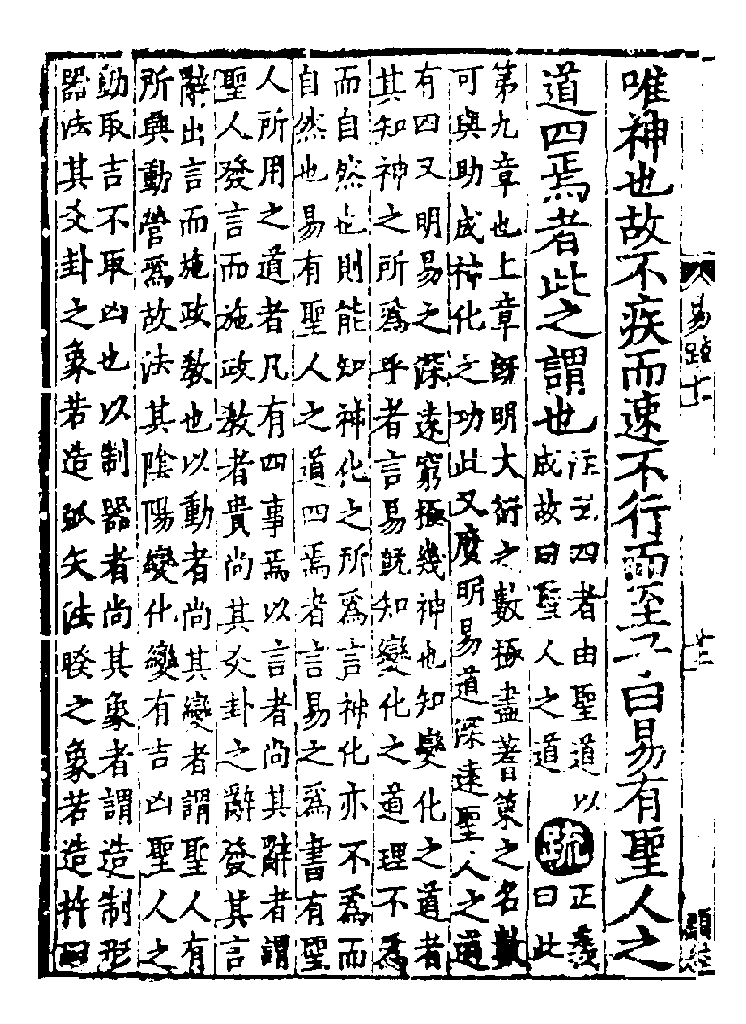 易疏十一
唯神也故不疾而速不行而至子曰易有聖人之
道四焉者此之謂也
注云四者由聖道以
成故曰聖人之道
疏
正義
曰此
第九章也上章既明大衍之數極盡蓍策之名數
可與助成神化之功此又廣明易道深遠聖人之道
有四又明易之深遠窮極幾神也知變化之道者
其知神之所爲乎者言易既知變化之道理不爲
而自然也則能知神化之所爲言神化亦不爲而
自然也易有聖人之道四焉者言易之爲書有聖
人所用之道者凡有四事焉以言者尚其辭者謂
聖人發言而施政教者貴尚其爻卦之辭發其言
辭出言而施政教也以動者尚其變者謂聖人有
所興動營爲故法其陰陽變化變有吉凶聖人之
動取吉不取凶也以制器者尚其象者謂造制形
器法其爻卦之象若造弧矢法睽之象若造杵臼